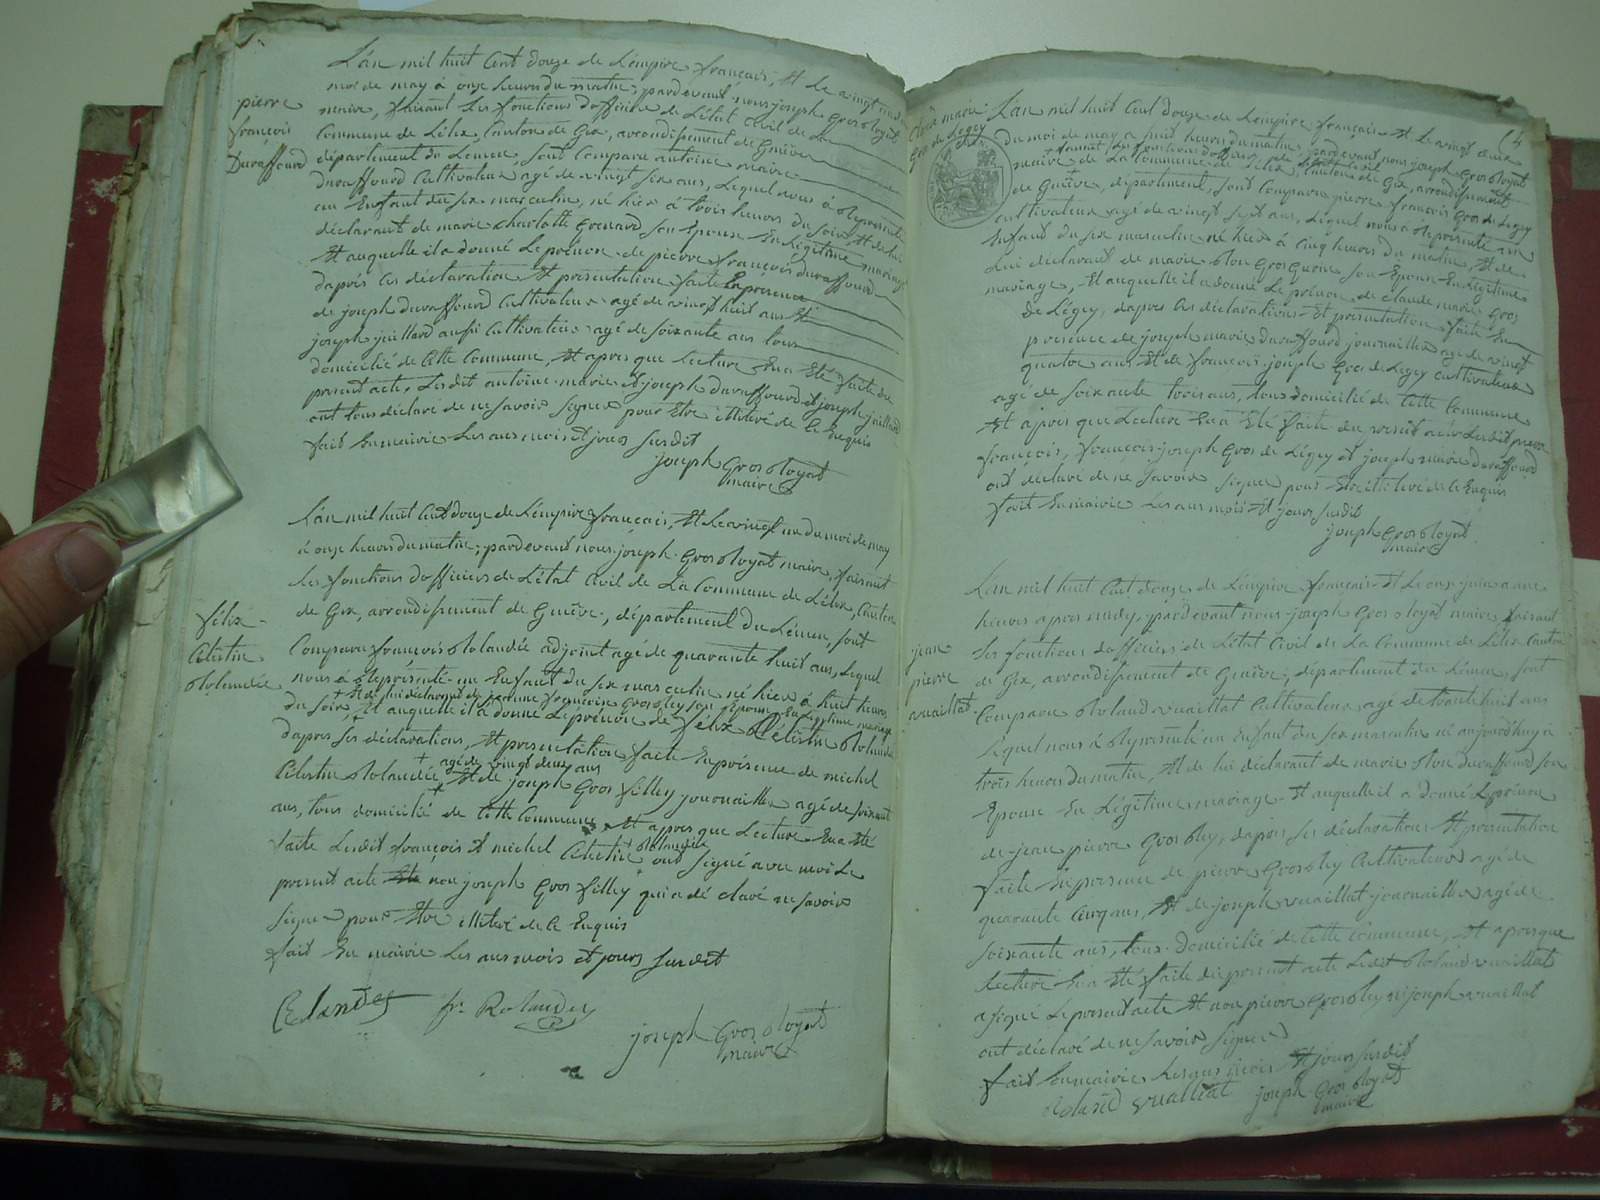 L'an mil huit Cent douze de L'empire français, Et Le vingt
moi de may à onze heures du matin, pardevant nous joseph Grosbloyat
maire, faisant Les fonctions d'officier de L'état Civil de La
Commune de Lélex, Canton de Gex, arrondissement de Genève
département du Léman, sont Comparu antoine marie
Duraffourd Cultivateur agé de vingt six ans, Lequel nous à Représenté
un Enfant du sex masculin, né hier à trois heures du soir, Et de Lui
déclarant de marie charlotte Grenard son Epouse En Légitime mariage
Et auquelle il a donné Le prénon de pierre françois duraffourd
daprès Ces déclaration Et présentation faite En présence
de joseph duraffourd Cultivateur agé de vingt huit ans Et
joseph juillard aussi Cultivateur agé de soixante ans tous
domicilié de Cette Commune, Et après que Lecture En a Eté faite du
présent acte, Lesdit antoine marie Et joseph duraffourd Et joseph juillard
ont tous déclaré de ne savoir signer pour Etre illitéré de Ce Enquis
fait En mairie Les ans mois Et jours susdit
joseph Grosbloyat
maire
pierre
françois
Duraffourd
L'an mil huit Cent douze de L'empire français, Et Le vingt un du moi de may
à onze heures du matin; pardevant nous joseph Grosbloyat maire, faisant
Les fonctions d'officiers de L'état Civil de La Commune de Lélex, Canton
de Gex, arrondissement de Genève, département du Léman, sont
Comparu françois Rolandée adjoint agé de quarante huit ans, Lequel
nous à Représenté un Enfant du sex masculin né hier à huit heures
+ Et de Lui déclarant de jeanne françoise Grosbley son Epouse En Légitime mariage
du soir, + Et auquelle il à donné Le prénon de félix Célestin Rolandée
dapres Ses déclarations, Et présentation faite En présence de michel
+ agé de vingt deux ans
Célestin Rolandée + Et de joseph Gros filley journaillier agé de soixante
ans, tous domicilié de Cette Commune, Et apres que Lecture En a Eté
+ Rolandée
faite Lesdit françois Et michel Célestin ont signé avec moi Le
présent acte non joseph Gros filley qui a déclaré ne savoir
signer pour Etre illitéré de Ce Enquis
fait En mairie Les ans mois et jours susdit
fr. Rolandez
joseph Grosbloyat
maire
félix
Célestin
Rolandée
L'an mil huit Cent douze de L'empire français Et Le vingt
du moi de may a huit heures du matin, pardevant nous joseph Grosbloyat
maire
de Genève, département, sont Comparu pierre françois Gros de Legey
cultivateur agé de vingt sept ans, Lequel nous à Représenté un
Enfant du sex masculin né hier à Cinq heures du matin, Et de
Lui déclarant de marie son Epouse En Légitime
mariage, Et auquelle il a donné Le prénon de claude marie Gros
de Légey, dapres Ces déclarations Et présentation faite En
présence de joseph marie duraffourd journaillier agé de vingt
quatre ans Et de françois joseph Gros de Legey cultivateur
agé de soixante trois ans, tous domicilié de Cette Commune
Et apres que Lecture En a Eté faite du present acte Lesdit pierre
françois, françois joseph Gros de Légey Et joseph marie duraffourd
ont déclaré de ne savoir signer pour Etre illitéré de Ce Enquis
fait En mairie Les ans mois Et jours susdit
joseph Grosbloyat
maire
L'an mil huit Cent douze, de L'empire français Et Le onze juin a une
heures apres midy, pardevant nous joseph Grosbloyat maire, faisant
Les fonctions d'officiers de L'état Civil de La Commune de Lélex Canton
de Gex, arrondissement de Genève, département du Léman, sont
Comparu Roland vuaillat Cultivateur agé de trente huit ans
Lequel nous à Représenté un Enfant du sex masculin né aujourd'huy à
trois heures du matin, Et de lui déclarant de marie duraffourd son
Epouse En Légitime mariage Et auquelle il a donné Le prénon
de jean pierre Grosbley, dapres Ses déclarations Et présentation
faite En presence de pierre Grosbley Cultivateur agé de
quarante Cinq ans, Et de joseph vuaillat journaillier agé de
soixante ans, tous domicilié de Cette commune, Et apres que
Lecture En a Eté faite du present acte Ledit Roland vuaillat
a signé Le present acte Et non pierre Grosbley ni joseph vuaillat
ont déclaré de ne savoir signer
fait En mairie Les ans mois Et jours susdit
Roland vuaillat joseph Grosbloyat
maire
jean
pierre
vuaillat